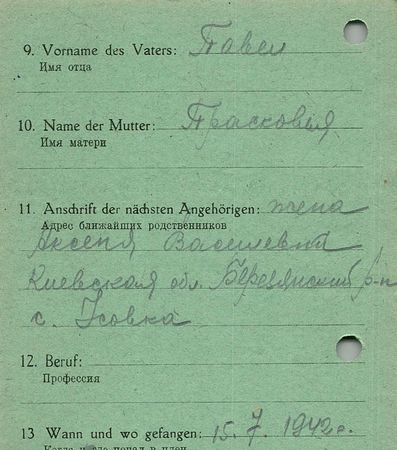 9. Vorname des Vaters: Павел
Имя отца
10. Name der Mutter: Прасковья
Имя матери
11. Anschrift der nächsten Angehörigen: жена
Адрес ближайших родственников
Аксеня Василевна
Киевская обл. Березянский р-н
с. Усовка
12. Beruf:
Профессия
13 Wann und wo gefangen: 15.7. 1942г.
Когда и где попал в плен